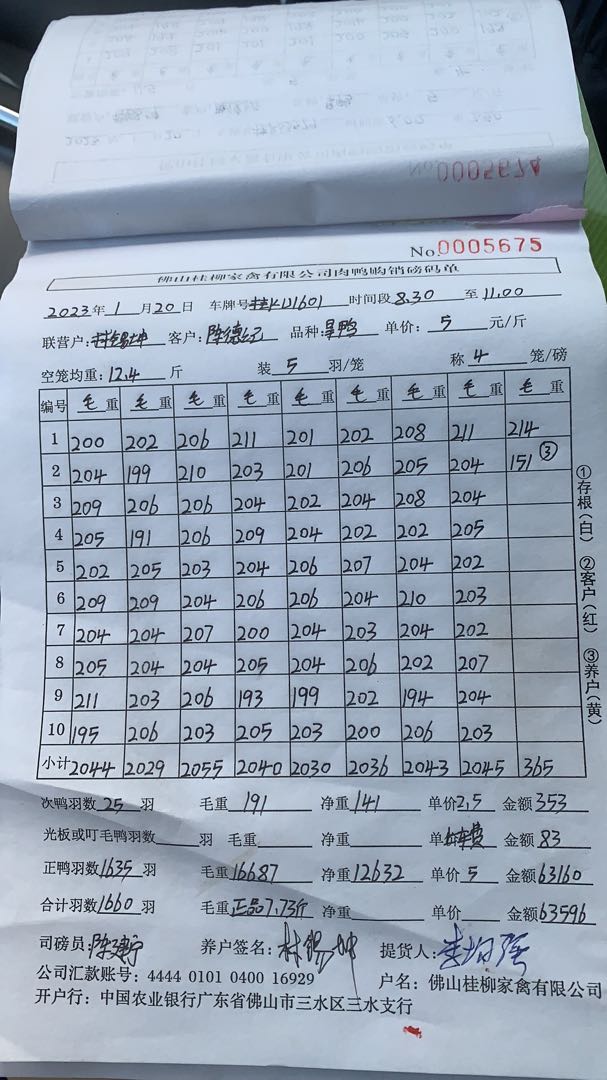 No.0005674
No.0005675
佛山桂柳家禽有限公司肉鸭购销磅码单
2023年1月20日 车牌号 1601 时间段8.30至11.00
联营户:林锡坤 客户:陈德纪 品种: 鸭 单价:5元/斤
空笼均重:12.4斤 装5羽/笼 称4笼/磅
编号 毛重 毛重 毛重 毛重 毛重 毛重 毛重 毛重 毛重
1 200 202 206 211 201 202 208 211 214
2 204 199 210 203 201 206 205 204 151③
3 209 206 206 204 202 204 208 204
4 205 191 206 209 204 202 202 205
5 202 205 203 204 206 207 204 202
6 209 209 204 206 206 204 210 203
7 204 204 207 200 204 203 204 202
8 205 204 204 205 204 206 202 207
9 211 203 206 193 199 202 194 204
10 195 206 203 205 203 200 206 203
小计 2044 2029 2055 2040 2030 2036 2043 2045 365
①存根(白) ②客户(红) ③养户(黄)
次鸭羽数25羽 毛重191 净重141 单价2,5 金额353
光板或叮毛鸭羽数 羽 毛重 净重 单 车费 金额83
正鸭羽数1635羽 毛重16687 净重12632 单价5 金额63160
合计羽数1660羽 毛重正品7.73斤 净重 单价 金额63596
司磅员:陈 养户签名:林锡坤 提货人:李
公司汇款账号:4444 0101 0400 16929 户名:佛山桂柳家禽有限公司
开户行:中国农业银行广东省佛山市三水区三水支行